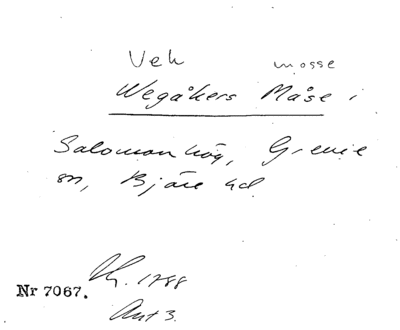 Vek mosse
Wegåkers Måse i
Salomonhög, Grevie
sn, Bjäre hd
Nr 7067. Lk. 1788
Akt 3.